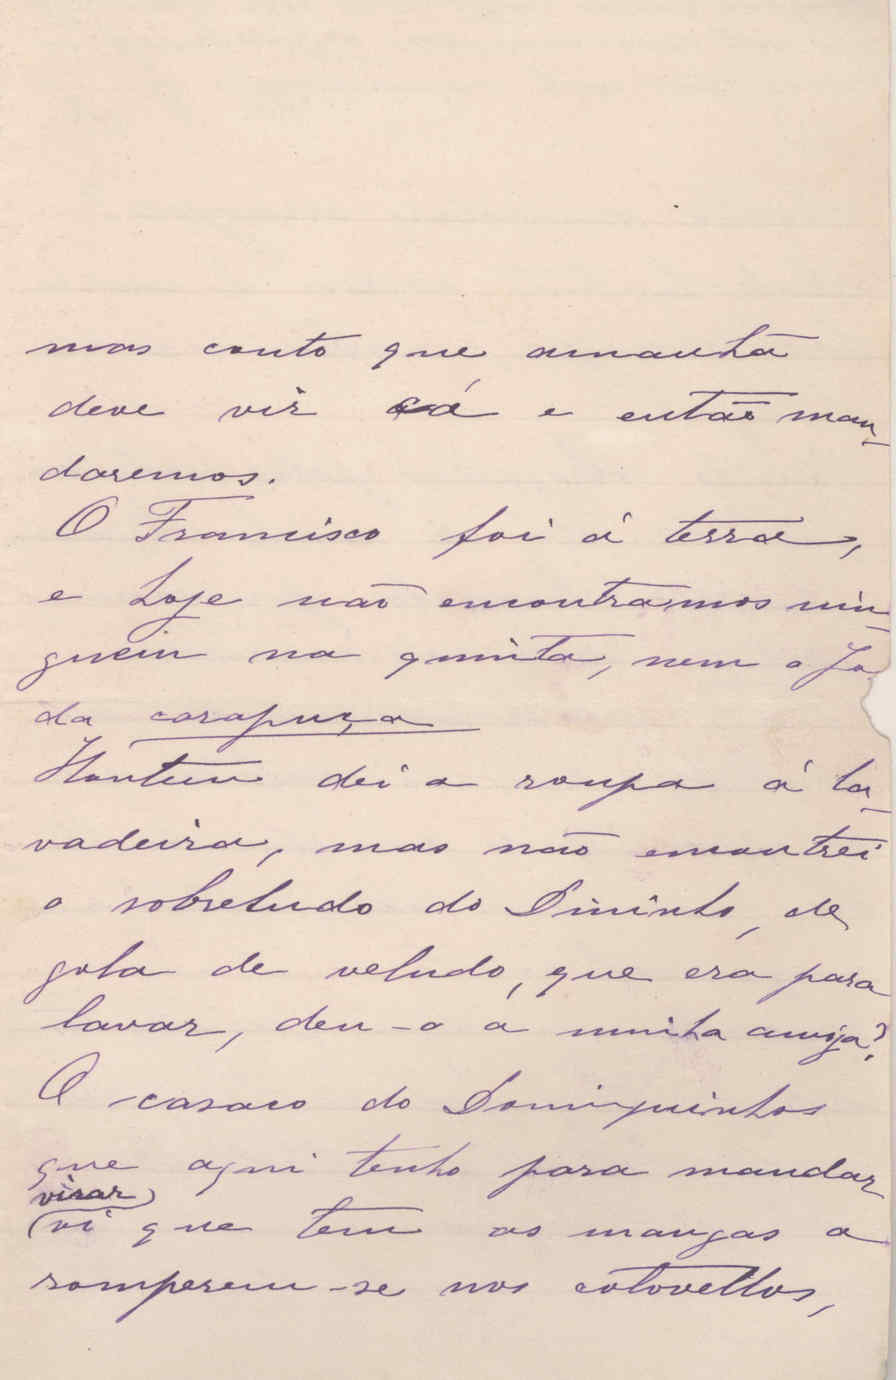 mas conto que amanhã
deve vir cá e então man-
daremos.
O Francisco foi á terra,
e hoje não encontramos nin-
guem na quinta, nem o Jo
da carapuça
Hontem dei a roupa á la-
vadeira, mas não encontrei
o sobretudo do Dininho, de
gola de veludo, que era para
lavar, deu-o a minha amiga?
O casaco do Dominguinhos
que aqui tenho para mandar
virar
vi que tem as mangas a
romperem-se nos cotovellos,